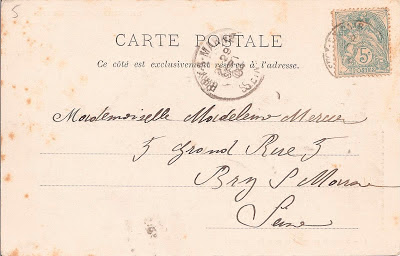 5
CARTE POSTALE
Ce côté est exclusivement réservé à l'adresse.
5
Mademoiselle Madeleine Mercier
5 Grand Rue 5
Bry S Marne
Seine